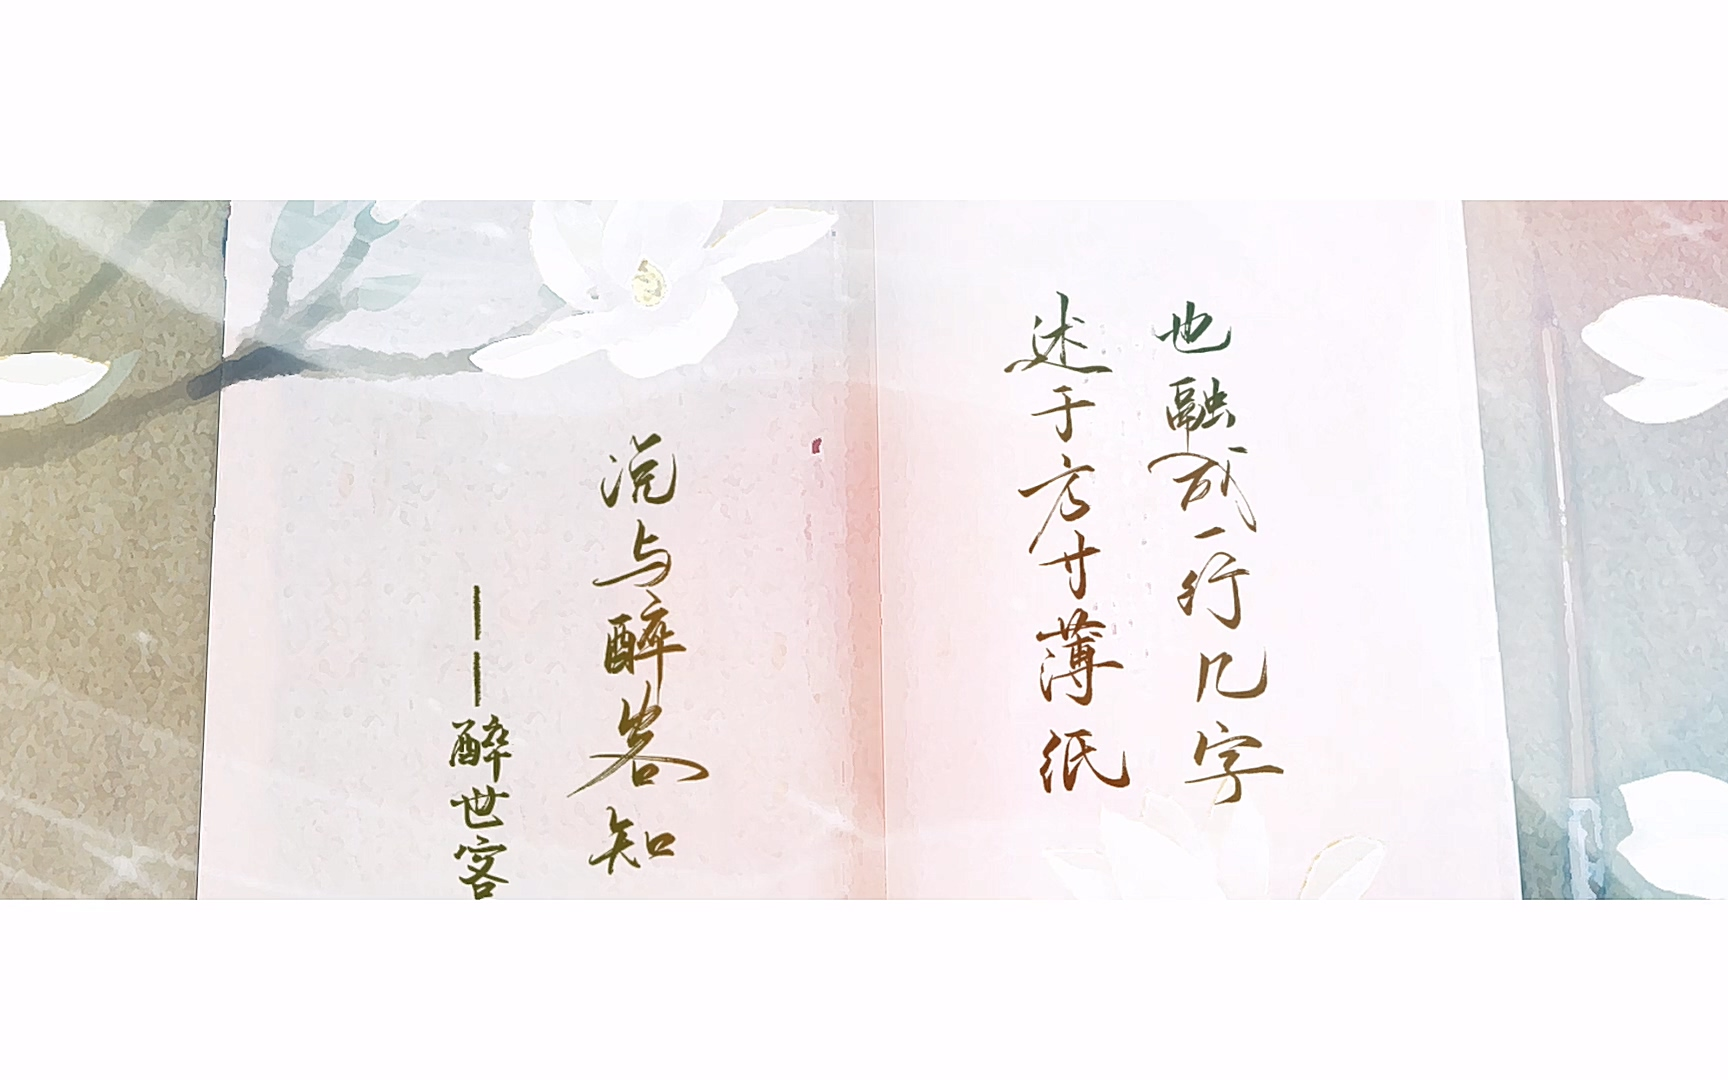 也融成一行几字
述于方寸薄纸
说与醉客知
——醉世客